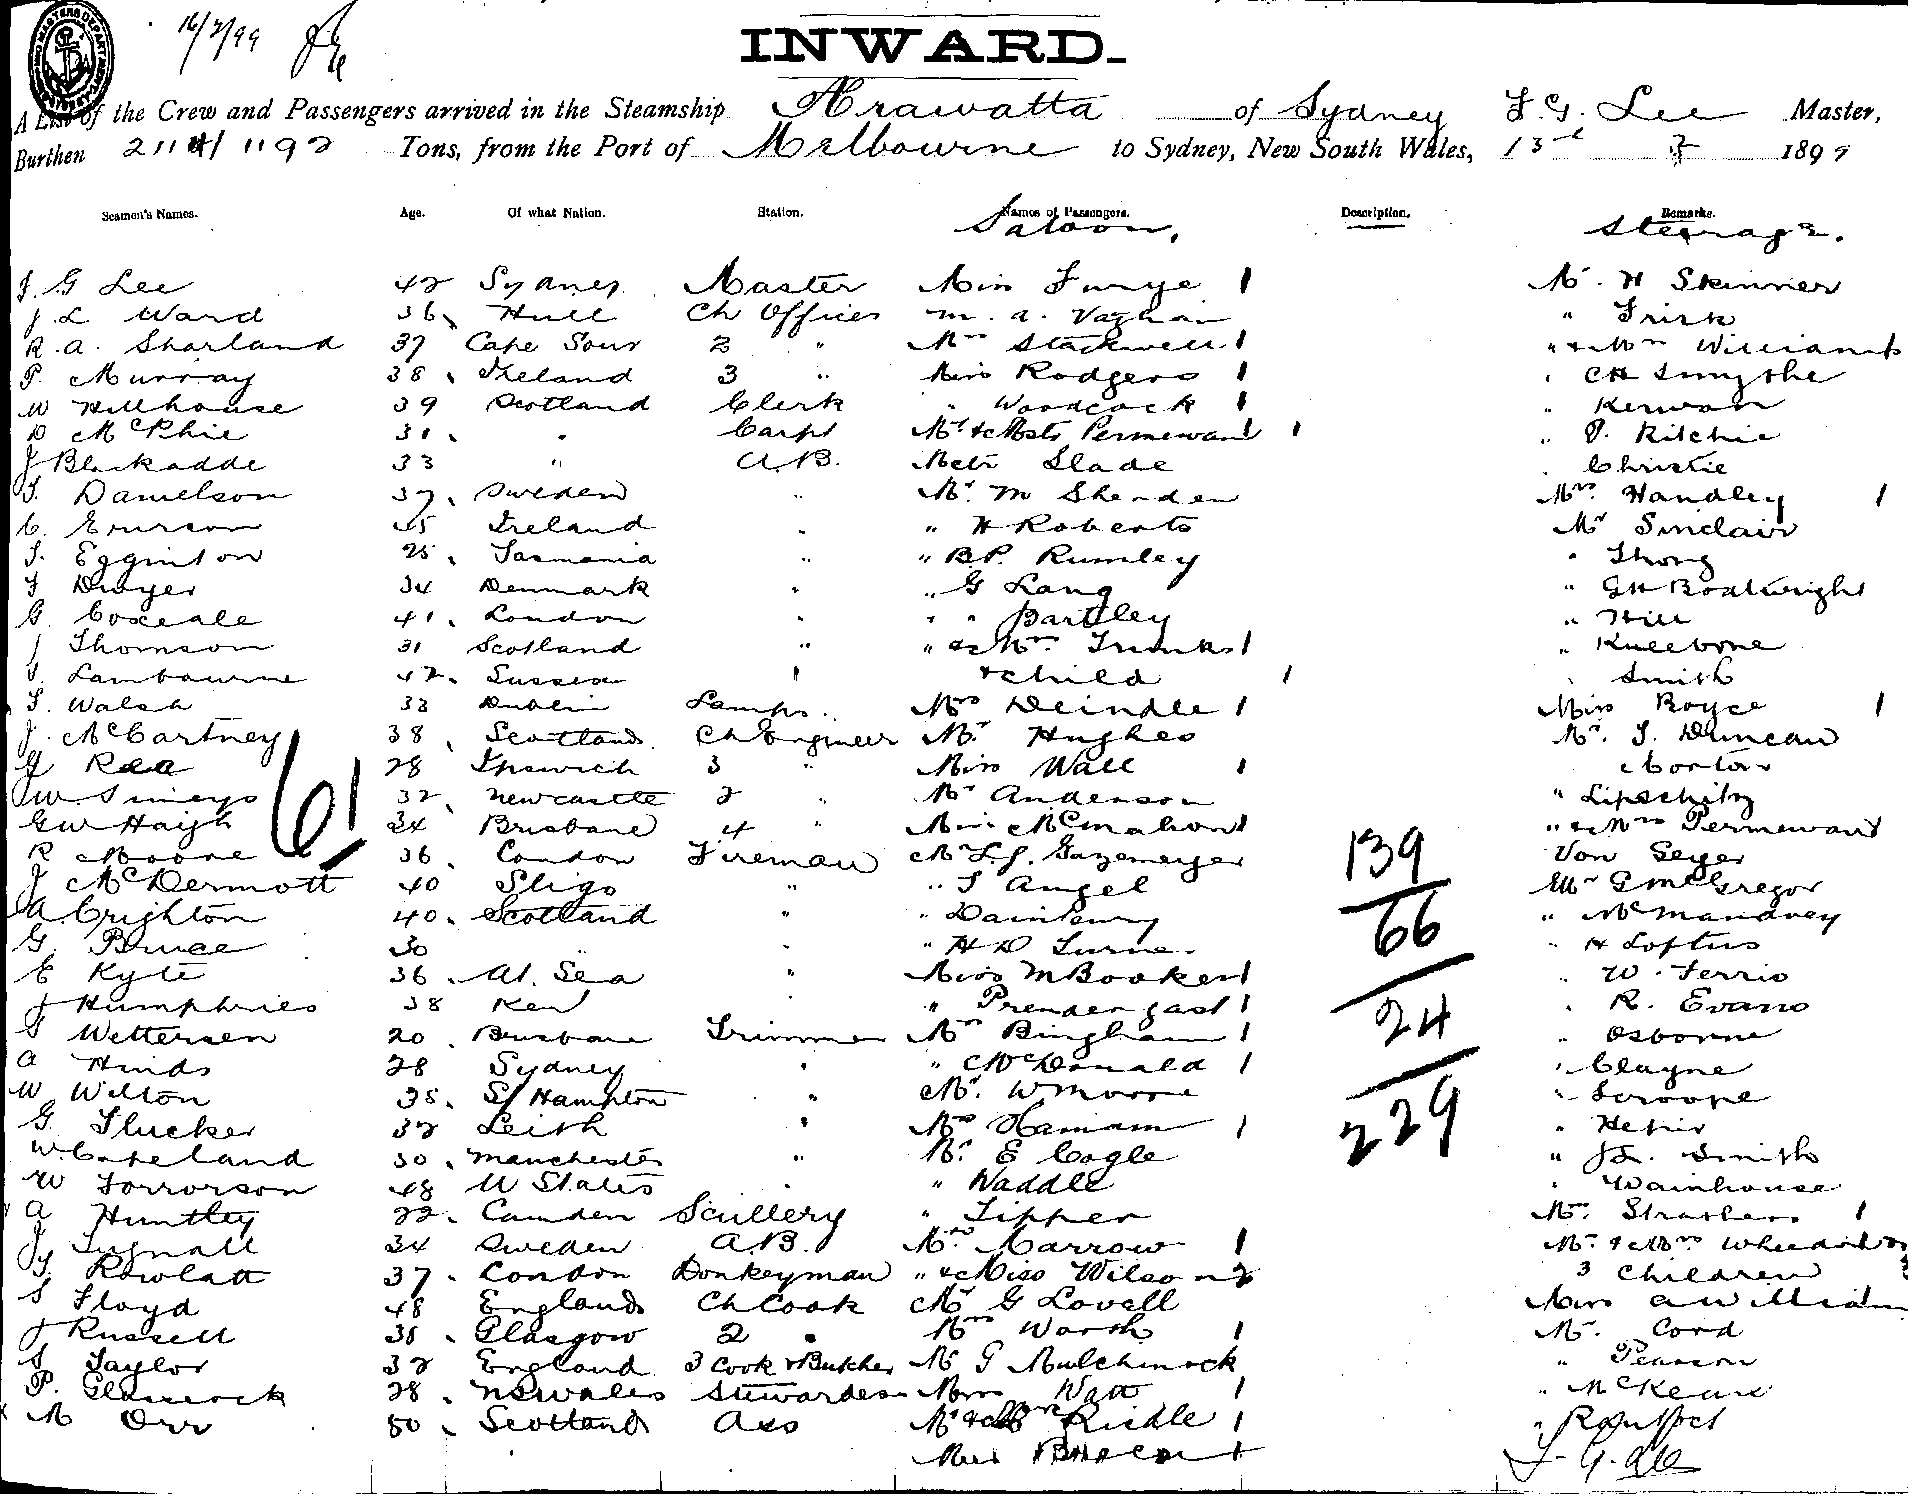 16/7/99
INWARD.
A List of the Crew and Passengers arrived in the Steamship Arawatta of Sydney F. G. Lee Master,
Burthen 2114/1192 Tons, from the Port of Melbourne to Sydney, New South Wales, 13th 7 1899
Seamen's Names. Age. Of what Nation. Station. Names of Passengers. Description. Remarks.
Saloon, Steerage.
F. G Lee 42 Sydney Master Miss Furye 1 Mr. H Skinner
J. L Ward 36 Hull Ch Officer M. A. Vaghan " Frisk
R. A. Sharland 37 Cape Sour 2 " Mrs Stackwell 1 " & Mrs Williams
P. Murray 38 Ireland 3 " Miss Rodgers 1 " CH Smythe
W Hillhouse 39 Scotland Clerk " Woodcock 1 " Kerwan
D McPhie 31 " Carpt Mr & Mstr Permewan 1 1 " P. Ritchie
J Blackadde 33 " A.B. Mstr Slade " Christie
J. Danielson 37 Sweden " Mr. M Sherden Mrs. Handley 1
C. 45 Ireland " " H Roberts Mr Sinclair
J. Egginton 25 Tasmania " " B.P. Rumley " Thong
J Dwyer 34 Denmark " " G Lang " GH Boatwright
G. Coxeale 41 London " " Bartley " Hill
J Thomson 31 Scotland " " & Mrs. Trunks 1 " Kneebone
J. Lambourne 42 Sussex " & child 1 " Smith
J. Walsh 33 Dublin Lamps. Mrs Deindle 1 Miss Royce 1
J. McCartney 38 Scotland Ch Engineer Mr. Hughes Mr. J. Duncan
J Rea 28 Ipswich 3 " Miss Wall 1
61
JW Simeys 32 Newcastle 2 " Mr Anderson " Lipschitz
GW Haigh 34 Brisbane 4 " Miss McMahon 1 " & Mrs Permewan
R Moore 36 London Fireman Mr L.J. Gazemeyer Von Geyer
139
J McDermott 40 Sligo " " J Angel Mr G McGregor
A. Crighton 40 Scotland " "
66
G. Bruce 30 " " " H D Turner " H Loftus
E Kyte 36 At Sea " Miss M Booker 1 " W. Ferris
J Humphries 38 Ken " " Prendergast 1 " R. Evans
24
S Wettersen 20 Brisbane Trimmer Mrs Bingham 1 " Osborne
A Hinds 28 Sydney " " McDonald 1 " Clayne
W Wilton 35 S/Hampton " Mr. W Moore " Scroope
229
G. Flucker 32 Leith " Mrs Hamam 1 "
W. Copeland 30 Manchester " Mr. E Cogle " J L. Smith
W Torrorson 48 U States " " Waddle " Wainhouse
A Huntley 22 Camden Scullery " Tipper Mrs. Strathers 1
J. Tugnall 34 Sweden A.B. Mrs Marrow 1 Mr. & Mrs
J. Rowlatt 37 London Donkeyman " & Miss Wilson 2 3 Children
S Floyd 48 England Ch Cook Mr G Lovell Miss A William
J Russell 38 Glasgow 2 " Mrs Worth 1 Mr. Cord
S Taylor 32 England 3 Cook & Butcher Mr G Mulchinock " Pearson
P. Glasscock 28 NSWales Stewardess Miss Watt 1 " McKean
M Orr 50 Scotland Ass Mr & Mrs Rickle 1 "
Miss 1